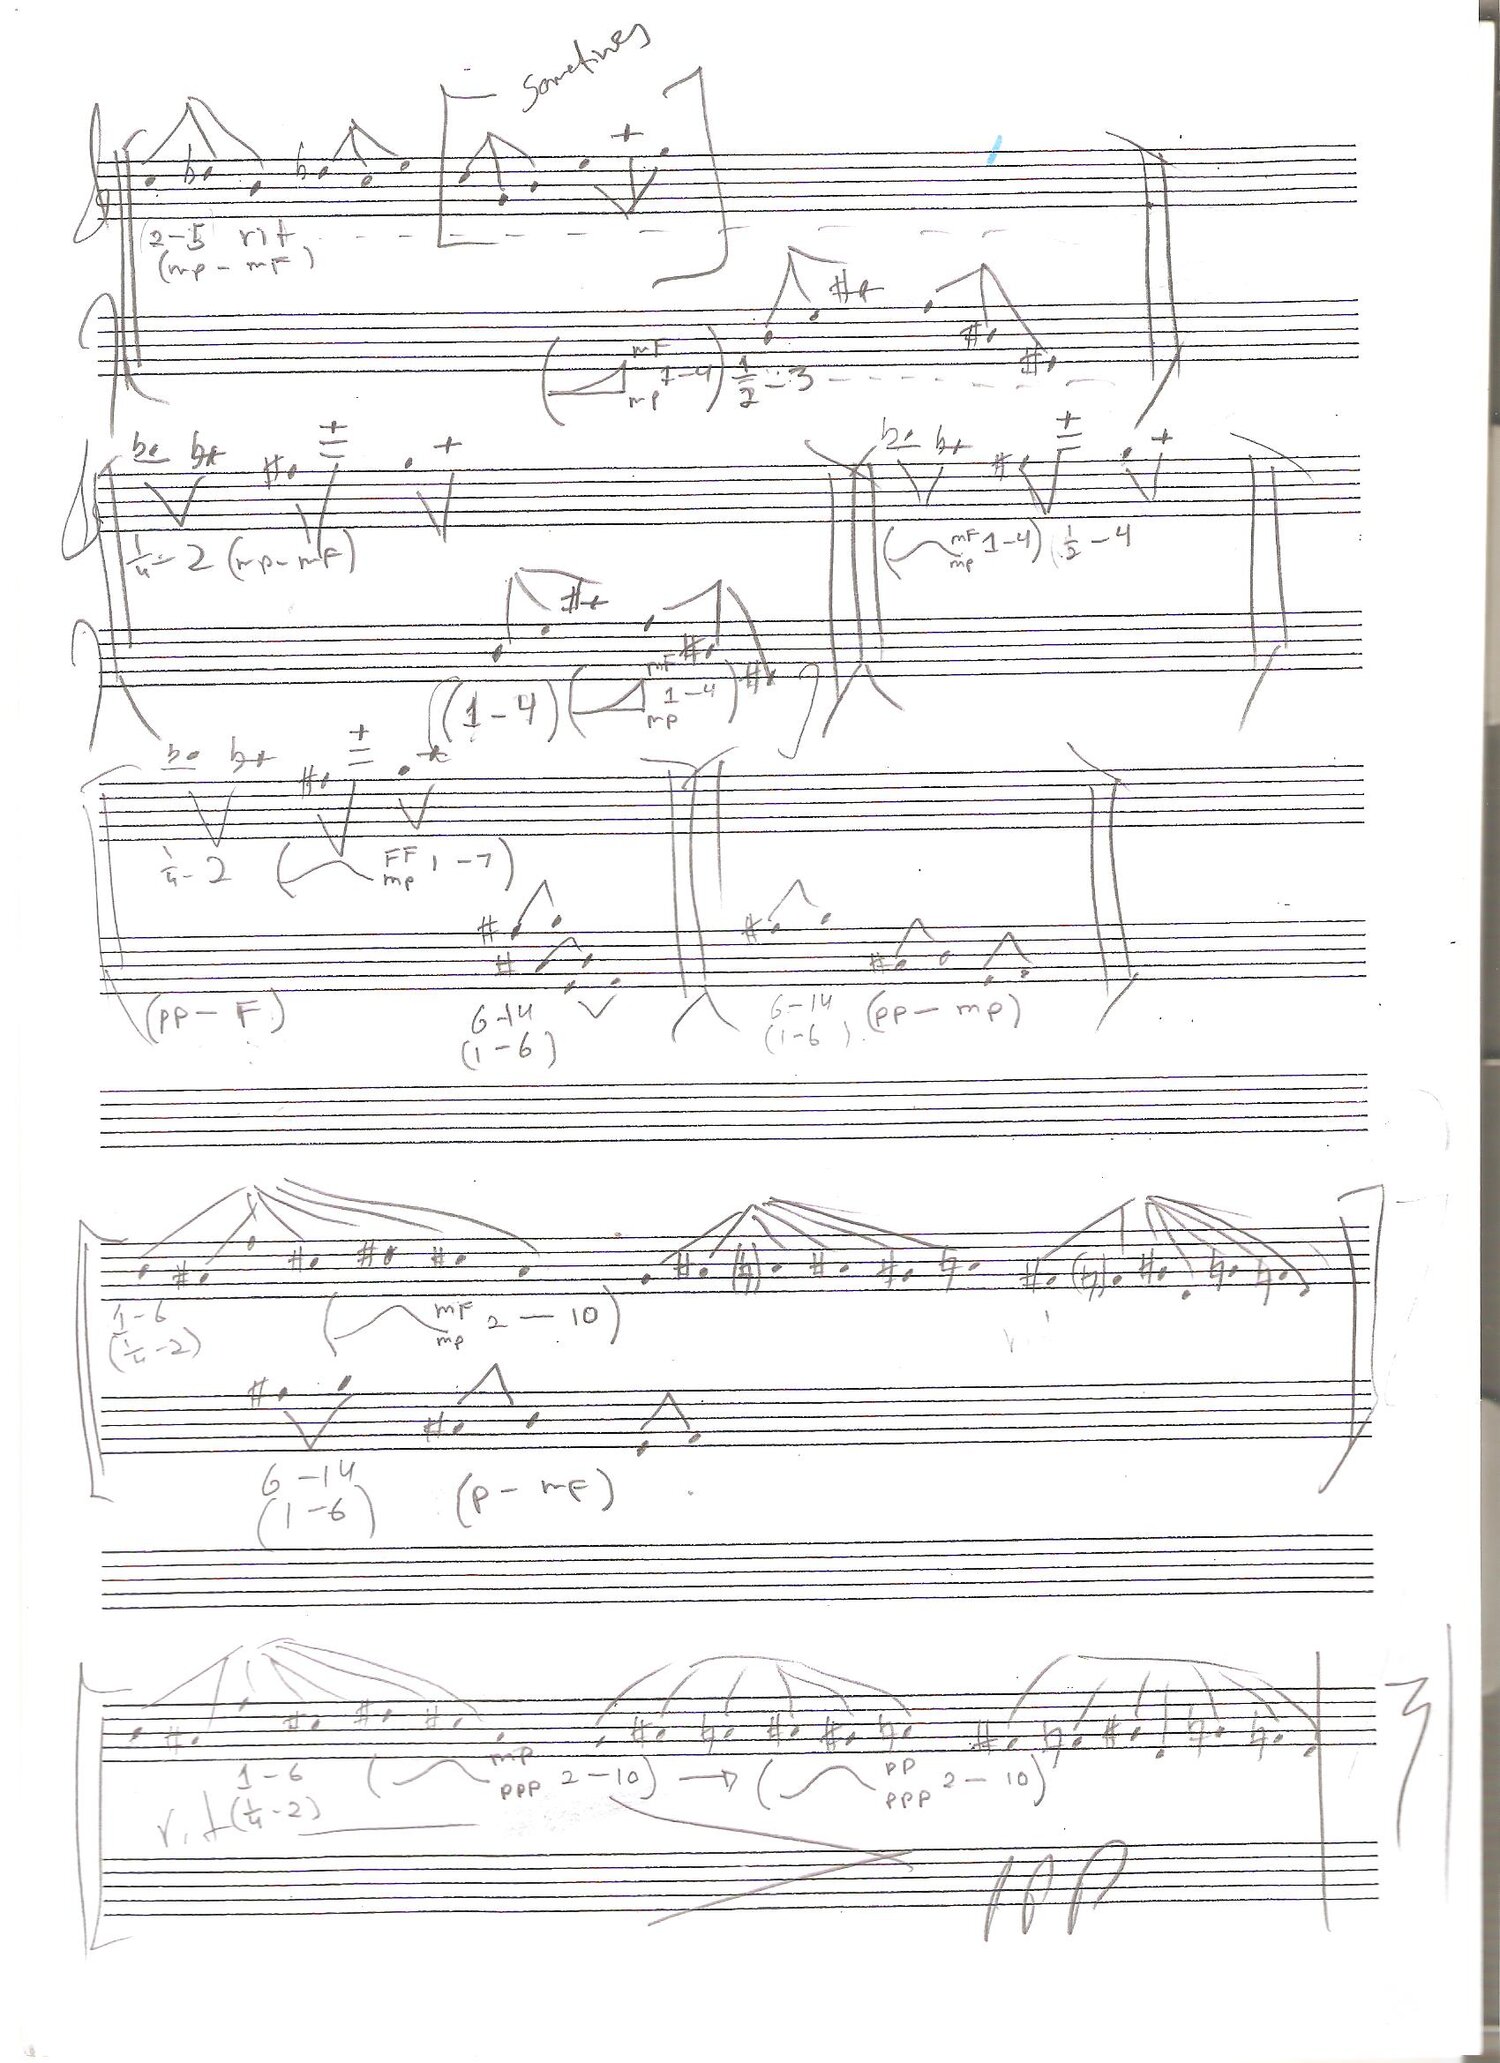 Sometimes
2-5 rit
(mp - mF)
(mF mp 1-4) 1/2 - 3
1/4 - 2 (mp - mF)
(mF mp 1-4) 1/2 - 4
(1-4) (mF mp 1-4)
1/4 - 2 (FF mp 1-7)
(pp - F)
6-14
(1-6)
6-14 (pp - mp)
(1-6)
1-6 (mF mp 2 - 10)
(1/4 - 2)
6-14 (p - mF)
(1-6)
1-6 (mp ppp 2-10) → (pp ppp 2-10)
rit (1/4 - 2)
ppp